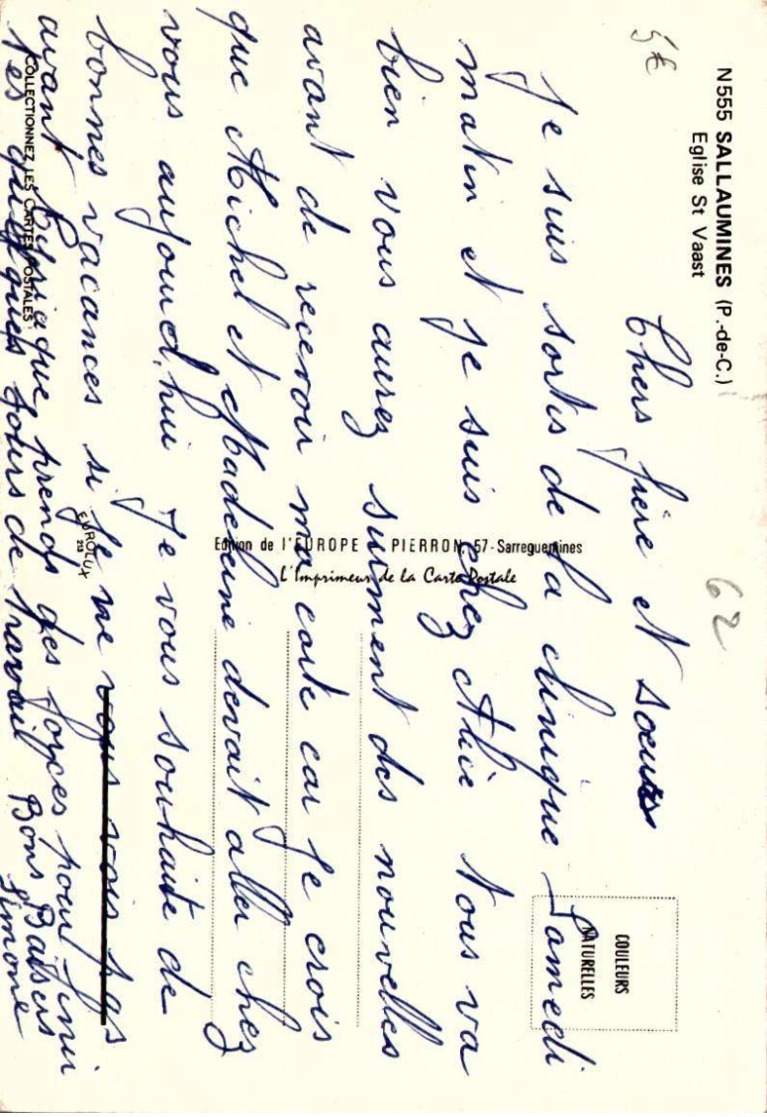 N555 SALLAUMINES (P.-de-C.)
Eglise St Vaast
5€
62
COULEURS
NATURELLES
Chers frère et soeurs
Je suis sortis de la clinique Samedi
matin et je suis chez Alice tous va
bien vous aurez surment des nouvelles
avant de recevoir ma carte car je crois
que Michel et Madeleine devait aller chez
vous aujourd,hui Je vous souhaite de
bonnes vacances si je ne vous vois pas
avant que prends des forces pour fini
les quelques jours de travail Bons Baisers
Simone
Edition de l'EUROPE PIERRON, 57-Sarreguemines
L'Imprimeur de la Carte Postale
EUROLUX
COLLECTIONNEZ LES CARTES POSTALES